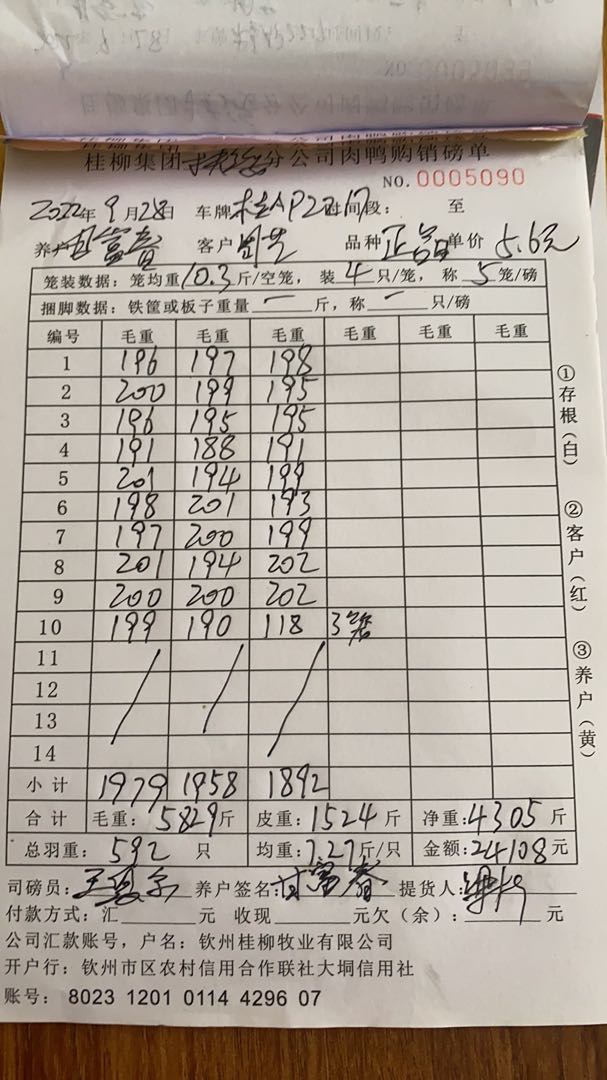 桂柳集团 分公司肉鸭购销磅单
NO.0005090
2022年9月28日 车牌 桂AP22 时间段： 至
养户 甘富春 客户 品种 正品 单价 5.6元
笼装数据：笼均重10.3斤/空笼，装4只/笼，称5笼/磅
捆脚数据：铁筐或板子重量一斤，称一只/磅
编号 毛重 毛重 毛重 毛重 毛重 毛重
1 196 197 198
2 200 199 195
3 196 195 195
4 191 188 191
5 201 194 199
6 198 201 193
7 197 200 199
8 201 194 202
9 200 200 202
10 199 190 118 3笼
11
12
13
14
小计 1979 1958 1892
合计 毛重：5829斤 皮重：1524斤 净重：4305斤
总羽重：592只 均重：7.27斤/只 金额：24108元
司磅员： 养户签名：甘富春 提货人：
付款方式：汇 元 收现 元欠（余）： 元
公司汇款账号，户名：钦州桂柳牧业有限公司
开户行：钦州市区农村信用合作联社大垌信用社
账号：8023 1201 0114 4296 07
①存根（白）
②客户（红）
③养户（黄）